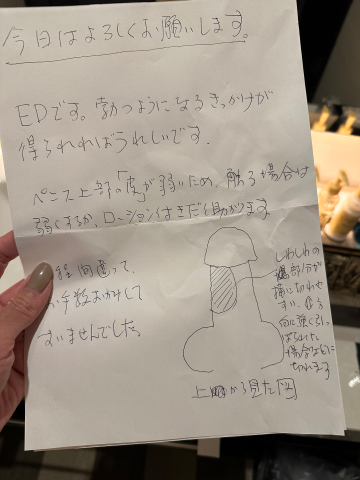 今日はよろしくお願いします。
EDです。勃つようになるきっかけが
得られればうれしいです。
ペニス上部の「皮」が弱いため、触る場合は
弱くするか、ローションはさむだと助かります
間違って、
お手数おかけして
すいませんでした。
しわしわの
部分が
切れやす
い
向に強く引っ
ぱられた
場合などに
切れます
上から見た図